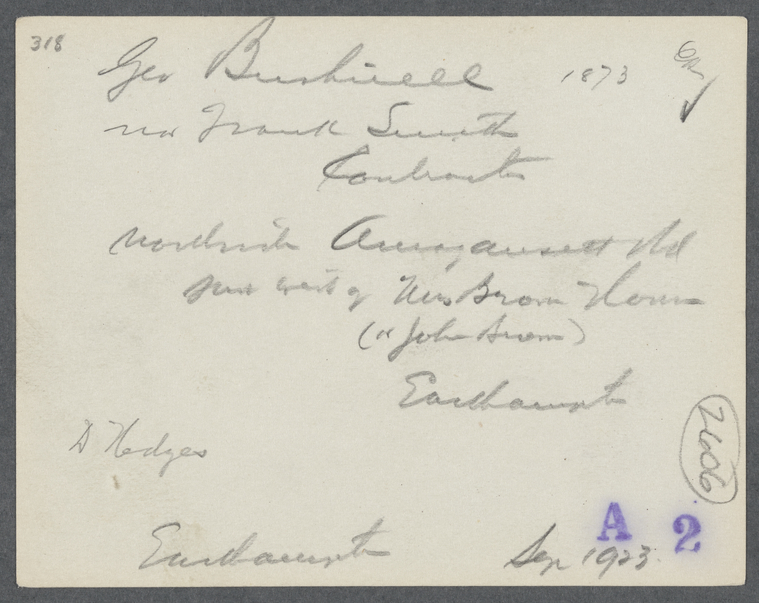 318
Geo Bushnell 1873
now Frank Smith
Contractor
northside Amagansett Rd
just west of Mrs Brown House
(or John Brown)
Easthampton
D Hedges
2606
A 2
Easthampton Sep 1923